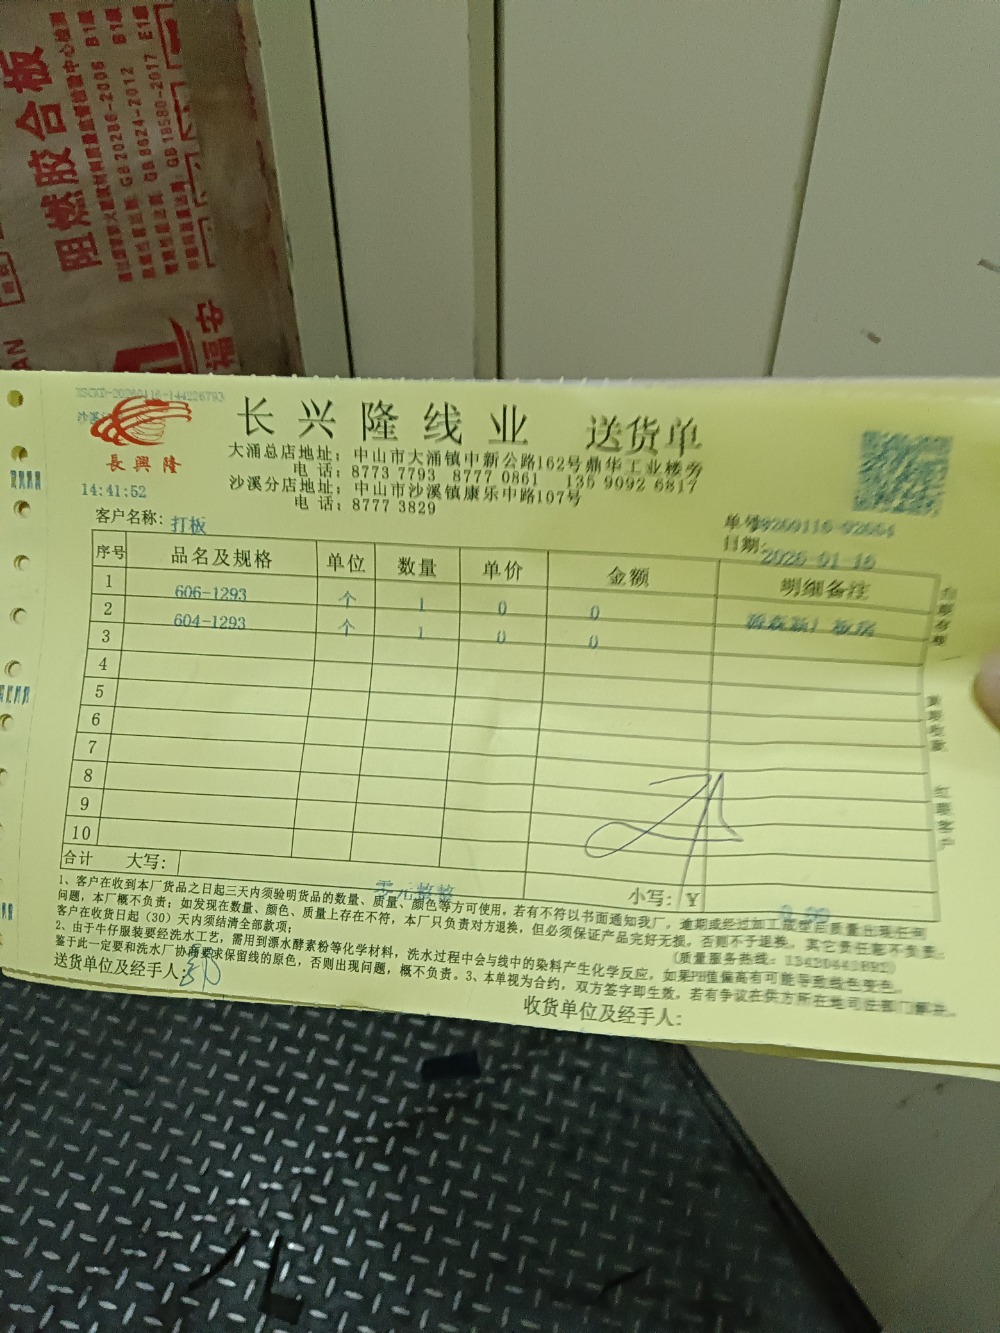 阻燃胶合板
GB 20286-2006 B1级
GB 8624-2012 B1级
GB 18580-2017 E1级
福
XSCKD-20260116-144226793
長興隆
14:41:52
长兴隆线业 送货单
大涌总店地址：中山市大涌镇中新公路162号鼎华工业楼旁
电 话：8773 7793 8777 0861 135 9092 6817
沙溪分店地址：中山市沙溪镇康乐中路107号
电 话：8777 3829
客户名称：打板
单号
日期：2026-01-16
序号 品名及规格 单位 数量 单价 金额 明细备注
1 606-1293 个 1 0 0
2 604-1293 个 1 0 0
3
4
5
6
7
8
9
10
合计 大写：零元整整 小写：¥ 0.00
1、客户在收到本厂货品之日起三天内须验明货品的数量、质量、颜色等方可使用。若有不符以书面通知我厂，逾期或经过加工成型后质量出现任何
问题，本厂概不负责；如发现在数量、颜色、质量上存在不符，本厂只负责对方退换，但必须保证产品完好无损，否则不予退换，其它责任概不负责。
客户在收货日起（30）天内须结清全部款项；
2、由于牛仔服装要经洗水工艺，需用到漂水酵素粉等化学材料，洗水过程中会与线中的染料产生化学反应，如果PH值偏高有可能导致线色变色。
鉴于此一定要和洗水厂协商要求保留线的原色，否则出现问题，概不负责。3、本单视为合约，双方签字即生效，若有争议在供方所在地司法部门解决。
送货单位及经手人：
收货单位及经手人：